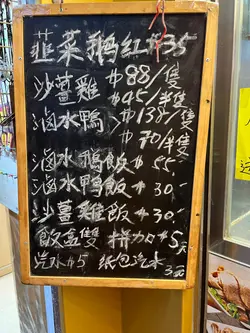 韮菜鵝紅$35
沙薑雞 $88/隻
$45/半隻
滷水鴨 $138/隻
$70/半隻
滷水鵝飯 $55.
滷水鴨飯 $30.-
沙薑雞飯 $30.-
飯盒雙拼加$5元
汽水$5 纸包汽水3元